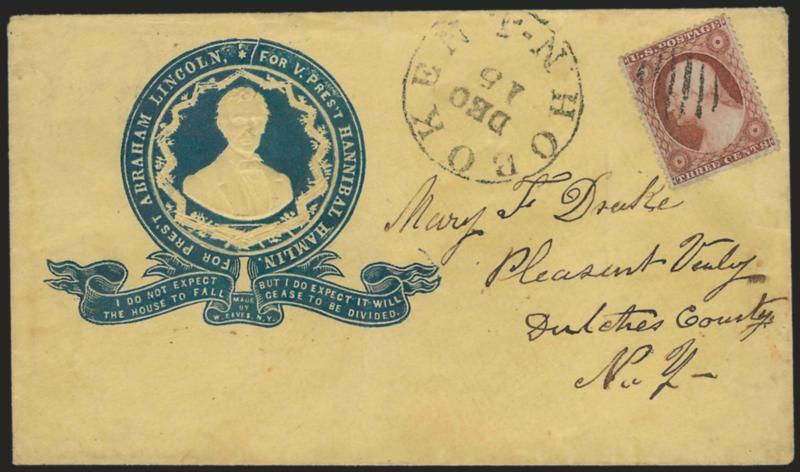 FOR PREST ABRAHAM LINCOLN. * FOR V. PRES'T HANNIBAL HAMLIN.
I DO NOT EXPECT
THE HOUSE TO FALL
MADE
BY
W. EAVES, N.Y.
BUT I DO EXPECT IT WILL
CEASE TO BE DIVIDED.
HOBOKEN N.J.
DEC
15
U.S. POSTAGE
THREE CENTS
Mary F Drake
Pleasent Vally
Dutches County
N. Y-